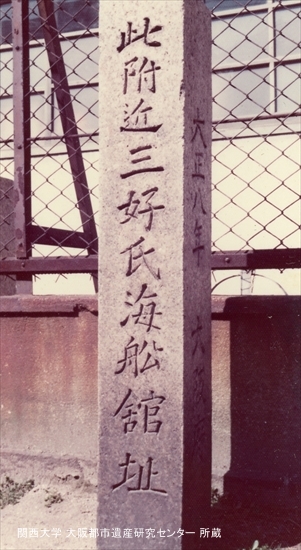 此附近三好氏海舩舘址
大正八年 大阪
関西大学 大阪都市遺産研究センター 所蔵